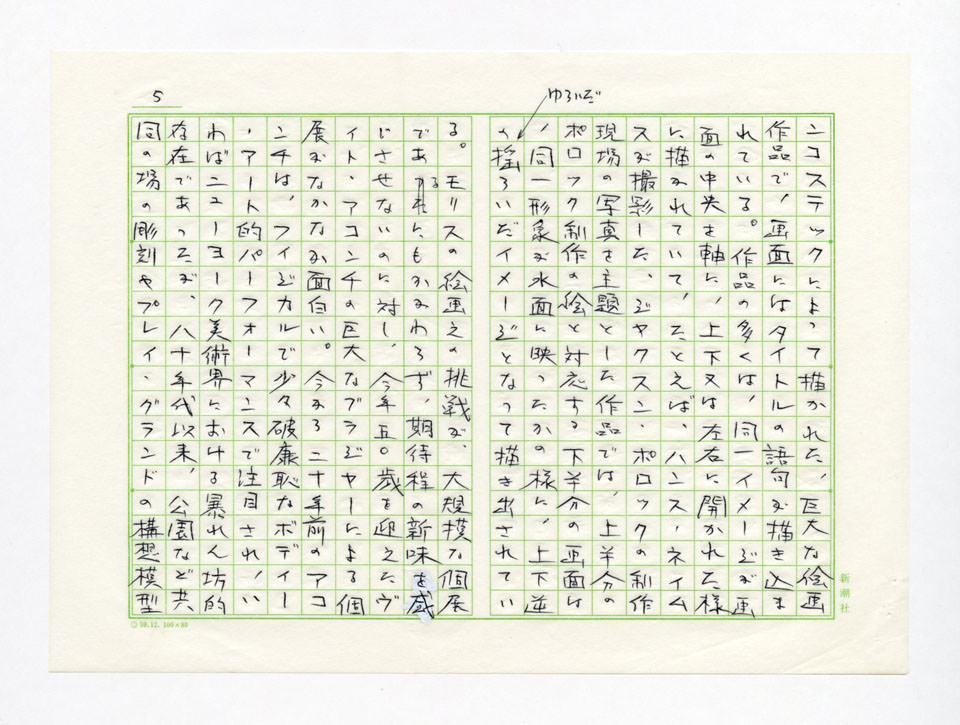 5
ゆらいだ
ンコスティックによって描かれた、巨大な絵画
作品で、画面にはタイトルの語句が描き込ま
れている。作品の多くは、同一イメージが画
面の中央を軸に、上下又は左右に開かれた様
に描かれていて、たとえば、ハンス・ネイム
スが撮影した、ジャクスン・ポロックの制作
現場の写真を主題とした作品では、上半分の
ポロック制作の絵と対応する下半分の画面は
、同一形象が水面に映ったかの様に、上下逆
の揺らいだイメージとなって描き出されてい
る。モリスの絵画えの挑戦が、大規模な個展
であるにもかかわらず、期待程の新味を感
じさせないのに対し、今年五〇歳を迎えたヴ
ィト・アコンチの巨大なブラジャーによる個
展がなかなか面白い。今から二十年前のアコ
ンチは、フィジカルで少々破廉恥なボディー
・アート的パフォーマンスで注目され、い
わばニューヨーク美術界における暴れん坊的
存在であったが、八十年代以来、公園など共
同の場の彫刻やプレイ・グランドの構想模型
新潮社
59.12. 100×80